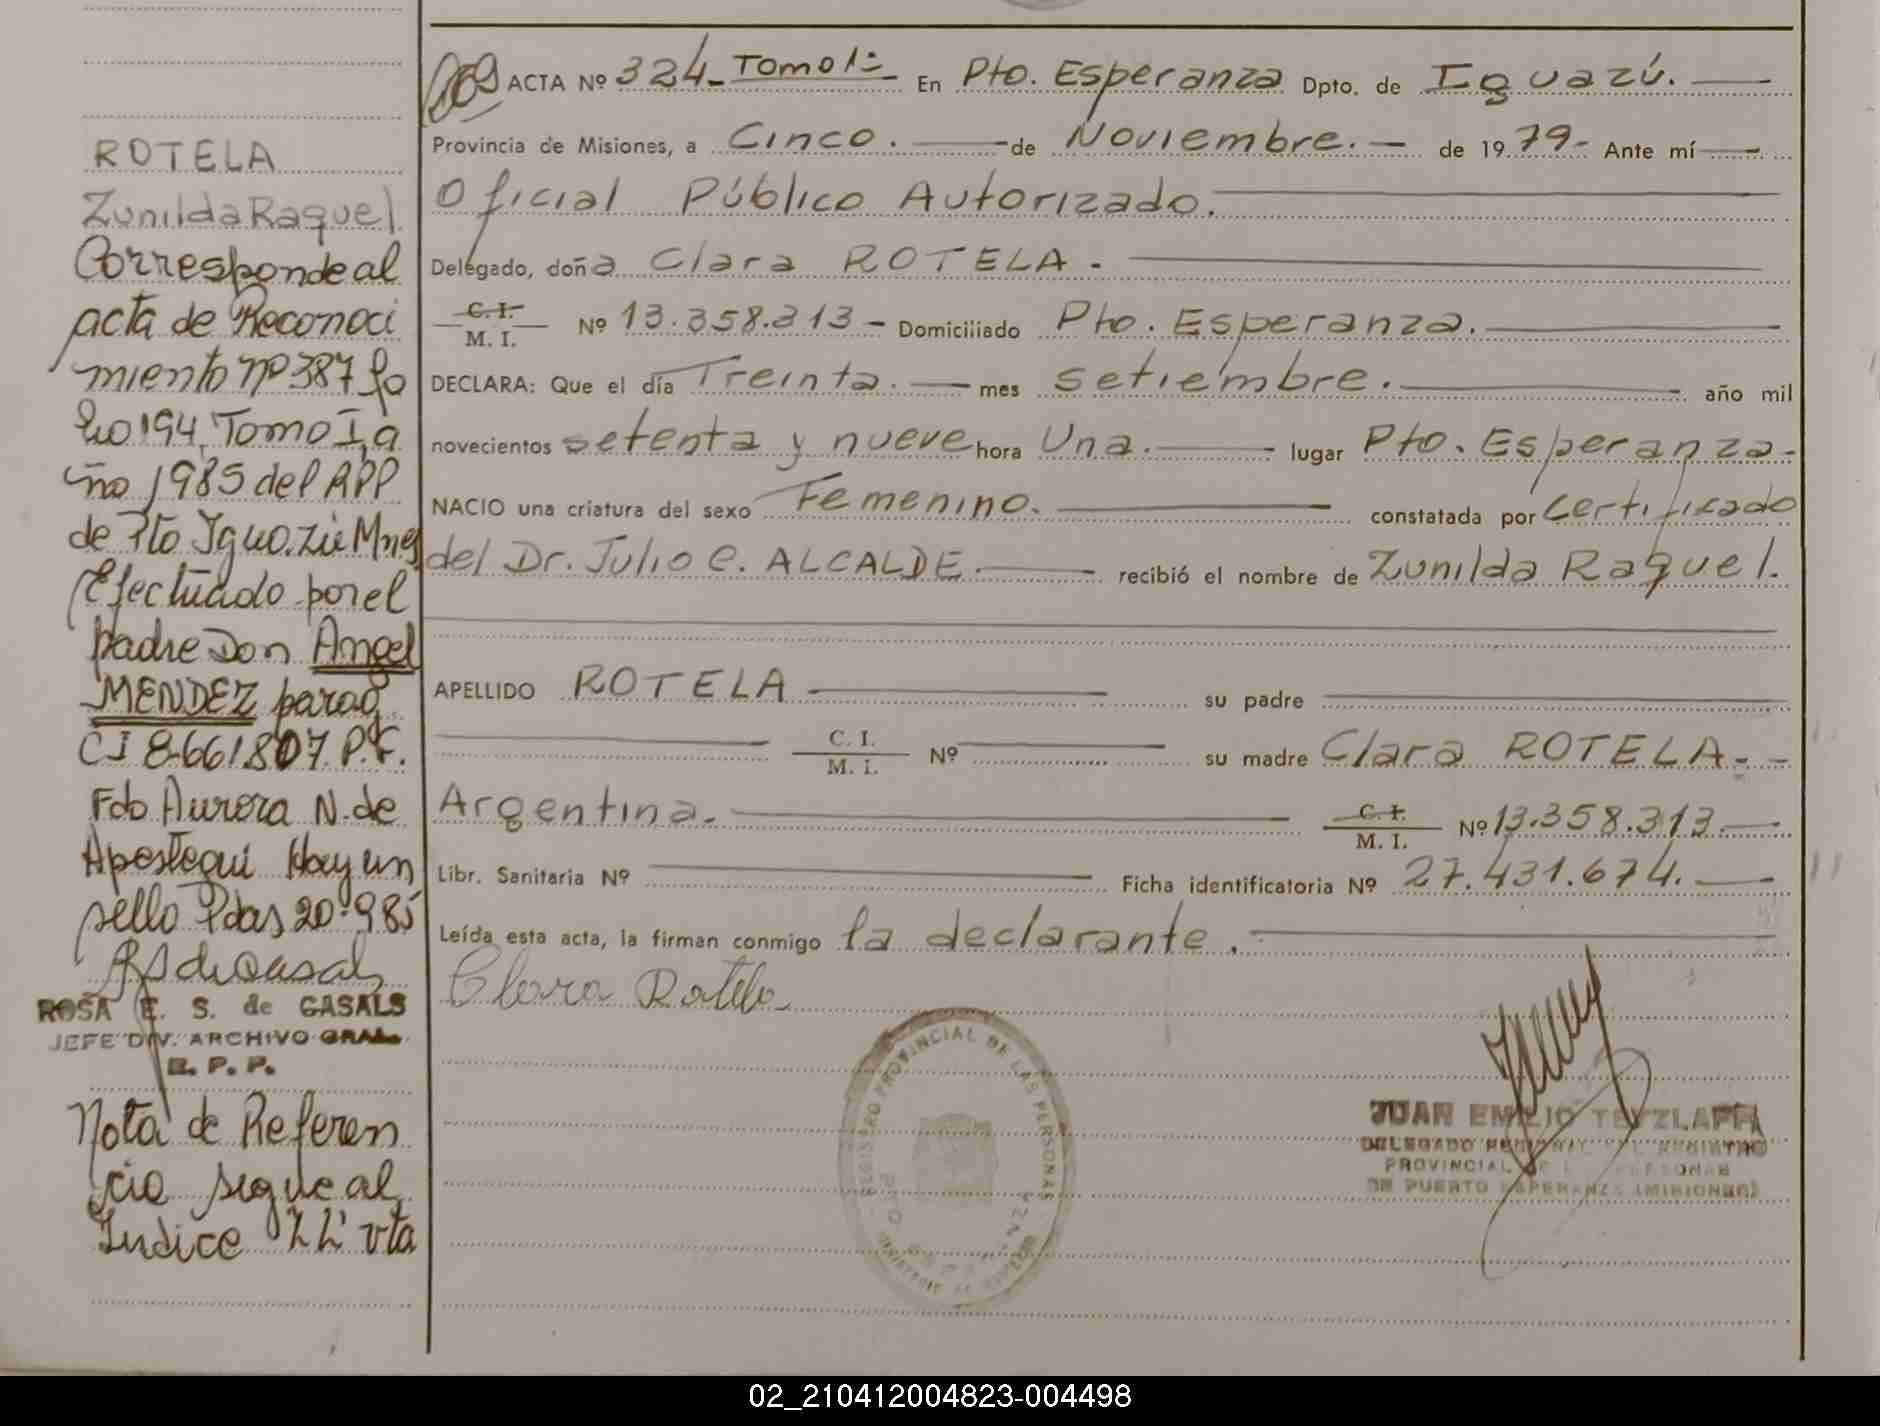 ROTELA
Zunilda Raquel
Corresponde al
acta de Reconoci
miento nº 387 fo
lio 194, Tomo I, a
ño 1985 del RPP
de Pto Iguazú Mnes
Efectuado por el
padre Don Angel
MENDEZ parag
CI 8661807 P.F.
Fdo Aurora N. de
Apestegui Hay un
sello Pdas 20-9-85
ROSA E. S. de CASALS
JEFE DIV. ARCHIVO GRAL.
R. P. P.
Nota de Referen
cia sigue al
Indice vta
ACTA Nº 324 - Tomo 1º En Pto. Esperanza Dpto. de Iguazú.
Provincia de Misiones, a Cinco. de Noviembre. de 1979- Ante mí
Oficial Público Autorizado.
Delegado, doña Clara ROTELA.
C. I.
M. I. Nº 13.358.313 - Domiciliado Pto. Esperanza.
DECLARA: Que el día Treinta. mes setiembre. año mil
novecientos setenta y nueve hora Una. lugar Pto. Esperanza-
NACIO una criatura del sexo Femenino. constatada por Certificado
del Dr. Julio C. ALCALDE. recibió el nombre de Zunilda Raquel.
APELLIDO ROTELA su padre
C. I.
M. I. Nº su madre Clara ROTELA.-
Argentina. C. I.
M. I. Nº 13.358.313.
Libr. Sanitaria Nº Ficha identificatoria Nº 27.431.674.
Leída esta acta, la firman conmigo la declarante.
Clara Rotela
REGISTRO PROVINCIAL DE LAS PERSONAS
JUAN EMILIO TEYZLAFF
DELEGADO REGIONAL DEL REGISTRO
PROVINCIAL DE LAS PERSONAS
DE PUERTO ESPERANZA (MISIONES)
02_210412004823-004498